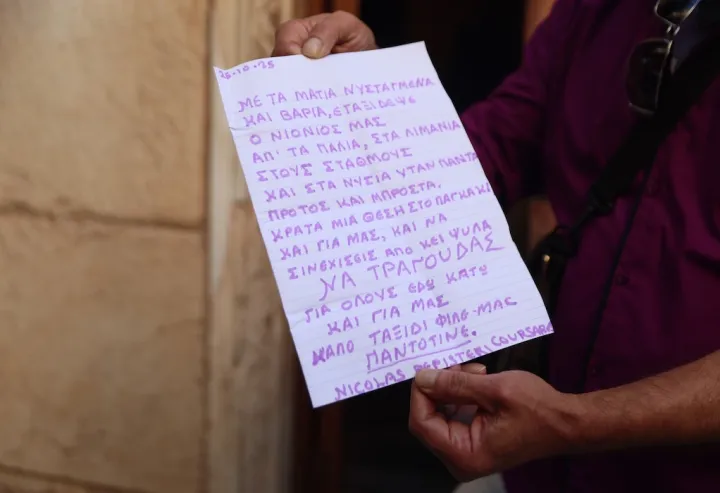 25.10.25
ΜΕ ΤΑ ΜΑΤΙΑ ΝΥΣΤΑΓΜΕΝΑ
ΚΑΙ ΒΑΡΙΑ, ΕΤΑΞΙΔΕΨΕ
Ο ΝΙΟΝΙΟΣ ΜΑΣ
ΑΠ' ΤΑ ΠΑΛΙΑ, ΣΤΑ ΛΙΜΑΝΙΑ
ΣΤΟΥΣ ΣΤΑΘΜΟΥΣ
ΚΑΙ ΣΤΑ ΝΥΣΙΑ ΥΤΑΝ ΠΑΝΤΑ
ΠΡΟΤΟΣ ΚΑΙ ΜΠΡΟΣΤΑ.
ΚΡΑΤΑ ΜΙΑ ΘΕΣΗ ΣΤΟ ΠΑΓΚΑΚΙ
ΚΑΙ ΓΙΑ ΜΑΣ, ΚΑΙ ΝΑ
ΣΙΝΕΧΙΣΕΙΣ ΑΠΟ ΚΕΙ ΨΥΛΑ
ΝΑ ΤΡΑΓΟΥΔΑΣ
ΓΙΑ ΟΛΟΥΣ ΕΔΩ ΚΑΤΩ
ΚΑΙ ΓΙΑ ΜΑΣ
ΚΑΛΟ ΤΑΞΙΔΙ ΦΙΛΕ-ΜΑΣ
ΠΑΝΤΟΤΙΝΕ.
NICOLAS